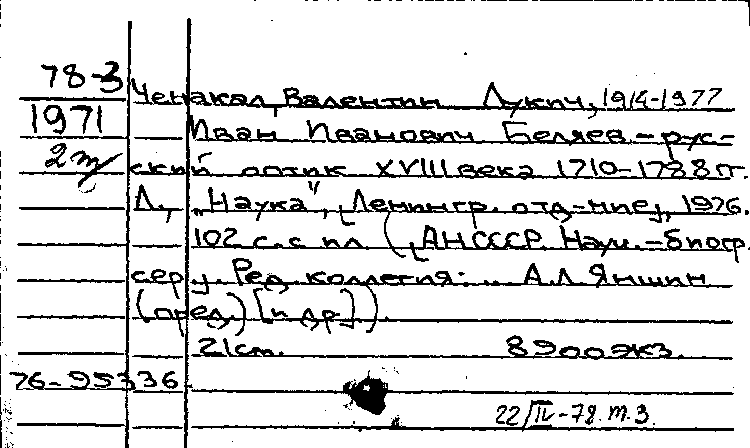 78-3
Ченакал, Валентин Лукич, 1914-1977
1971
Иван Иванович Беляев - рус-
2т/
ский оптик XVIII века 1710-1788 гг.
Л., "Наука", [Ленингр. отд-ние], 1976.
102 с. с ил. ([АН СССР. Науч.-биогр.
сер.]. Ред. коллегия: ... А.Л. Яншин
(пред.) [и др.]).
21 см. 8900 экз.
76-95336
22/IV-78. т.3.